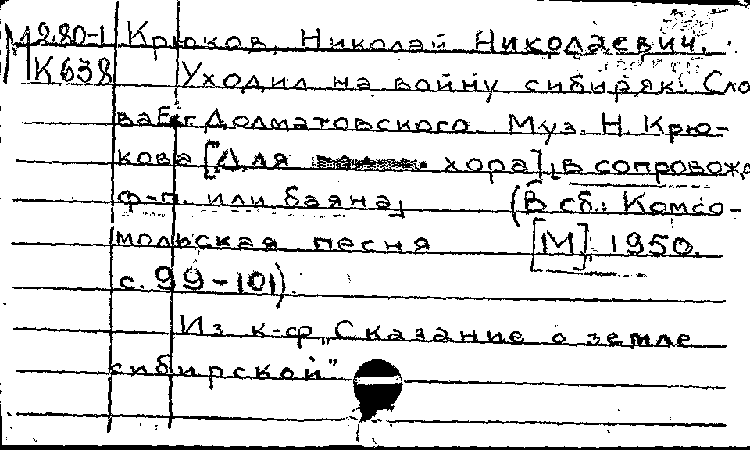 М 9.80-1 Крюков, Николай Николаевич.
К638 Уходил на войну сибиряк. Сло
ва Евг. Долматовского. Муз. Н. Крю-
кова [Для хора], в сопровожд
ф-п. или баяна, (В сб.: Комсо-
мольская песня [М]. 1950.
с. 99-101).
Из к-ф „Сказание о земле
сибирской"